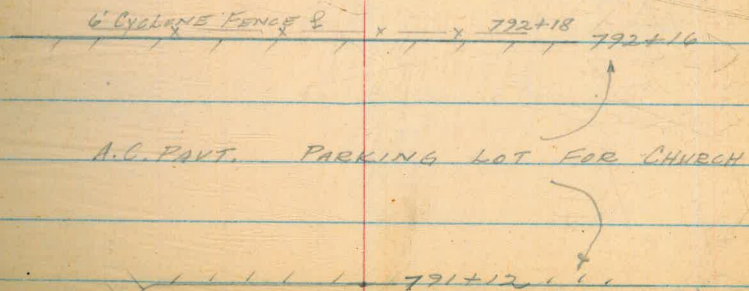 6' CYCLONE FENCE & 792+18
792+16
A.C. PAVT. PARKING LOT FOR CHURCH
791+12